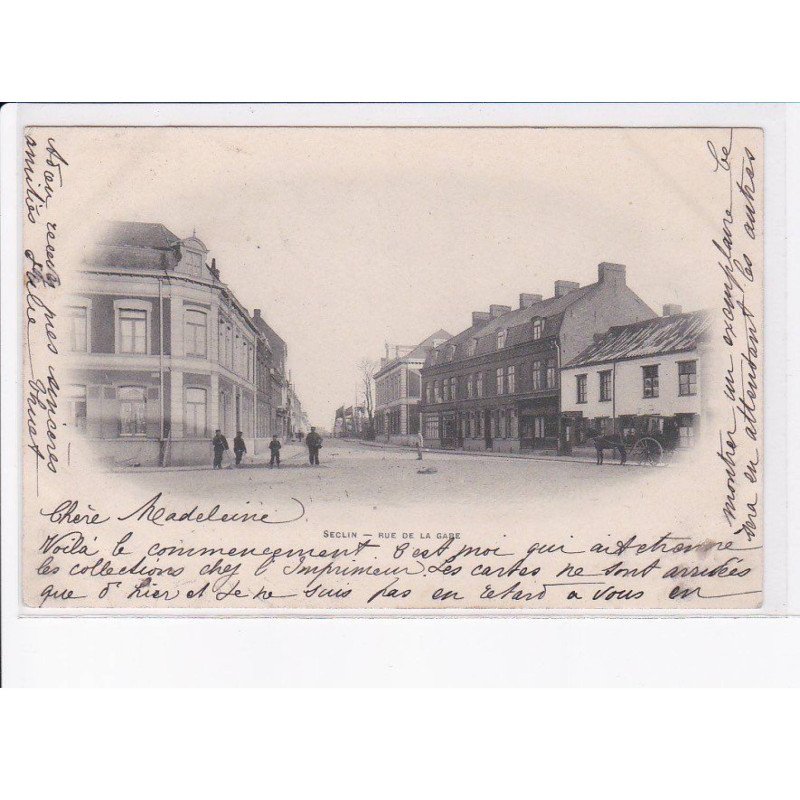 SECLIN — RUE DE LA GARE
Chère Madeleine
Voilà le commencement c'est moi qui ai
les collections chez l'Imprimeur. Les cartes ne sont arrivées
que d'hier et je ne suis pas en retard a vous en
montrer un exemplaire
en attentant les autres
recevez mes sincères
amitiés